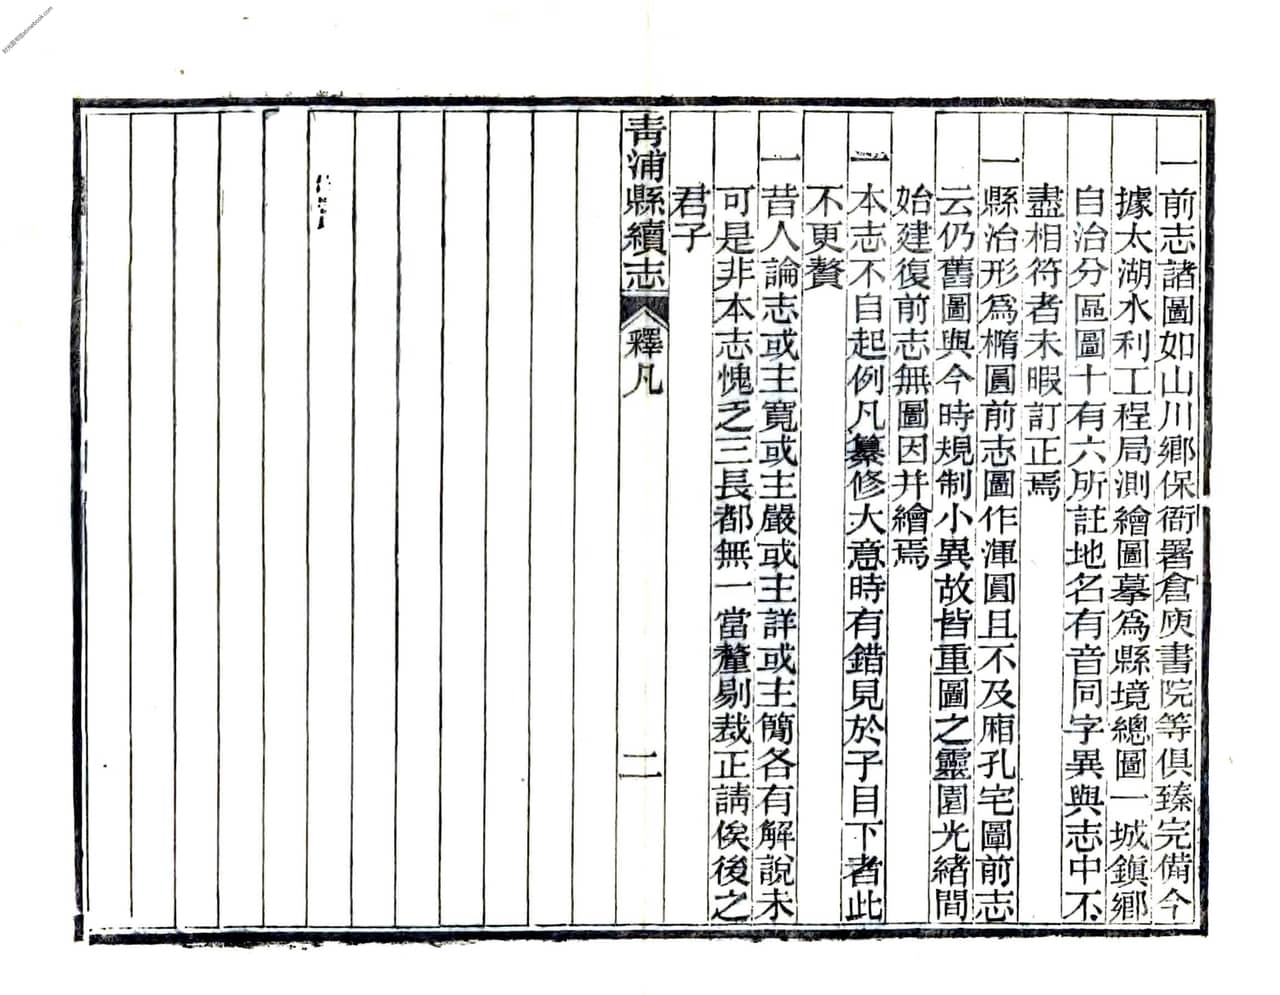 一前志諸圖如山川鄉保衙署倉庾書院等俱臻完備今
據太湖水利工程局測繪圖摹爲縣境總圖一城鎭鄉
自治分區圖十有六所註地名有音同字異與志中不
盡相符者未暇訂正焉
一縣治形爲橢圓前志圖作渾圓且不及廂孔宅圖前志
云仍舊圖與今時規制小異故皆重圖之靈園光緖間
始建復前志無圖因并繪焉
一本志不自起例凡纂修大意時有錯見於子目下者此
不更贅
一昔人論志或主寬或主嚴或主詳或主簡各有解說未
可是非本志愧乏三長都無一當釐剔裁正請俟後之
君子
靑浦縣續志 釋凡 二